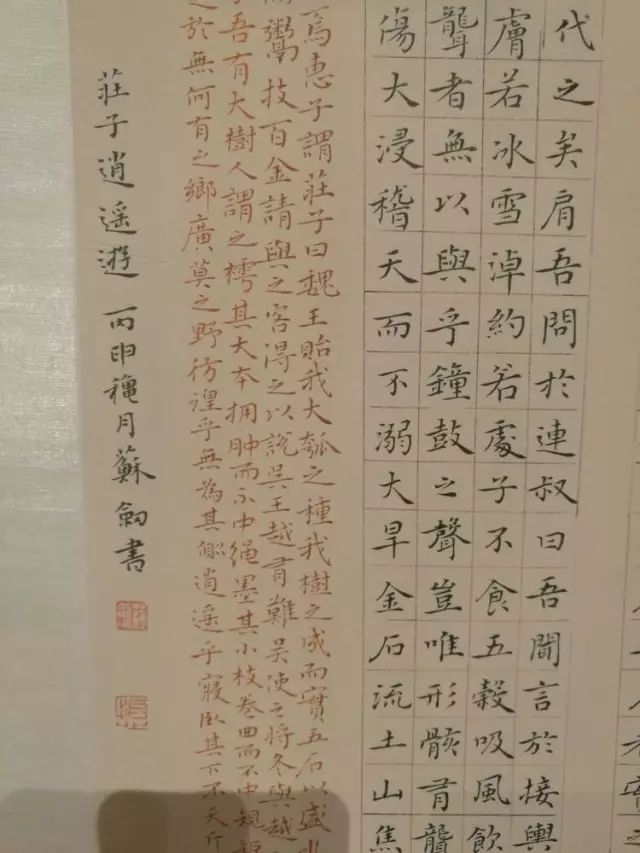 代之矣肩吾問於連叔曰吾聞言於接輿
膚若冰雪淖約若處子不食五穀吸風飲
聾者無以與乎鐘鼓之聲豈唯形骸有聾
傷大浸稽天而不溺大旱金石流土山焦
焉惠子謂莊子曰魏王貽我大瓠之種我樹之成而實五石以盛水
鬻技百金請與之客得之以說吳王越有難吳使之將冬與越
子吾有大樹人謂之樗其大本拥肿而不中繩墨其小枝卷曲而不中規
之於無何有之鄉廣莫之野彷徨乎無為其側逍遥乎寢臥其下不夭斤
莊子逍遥遊 丙申穐月蘇劍書